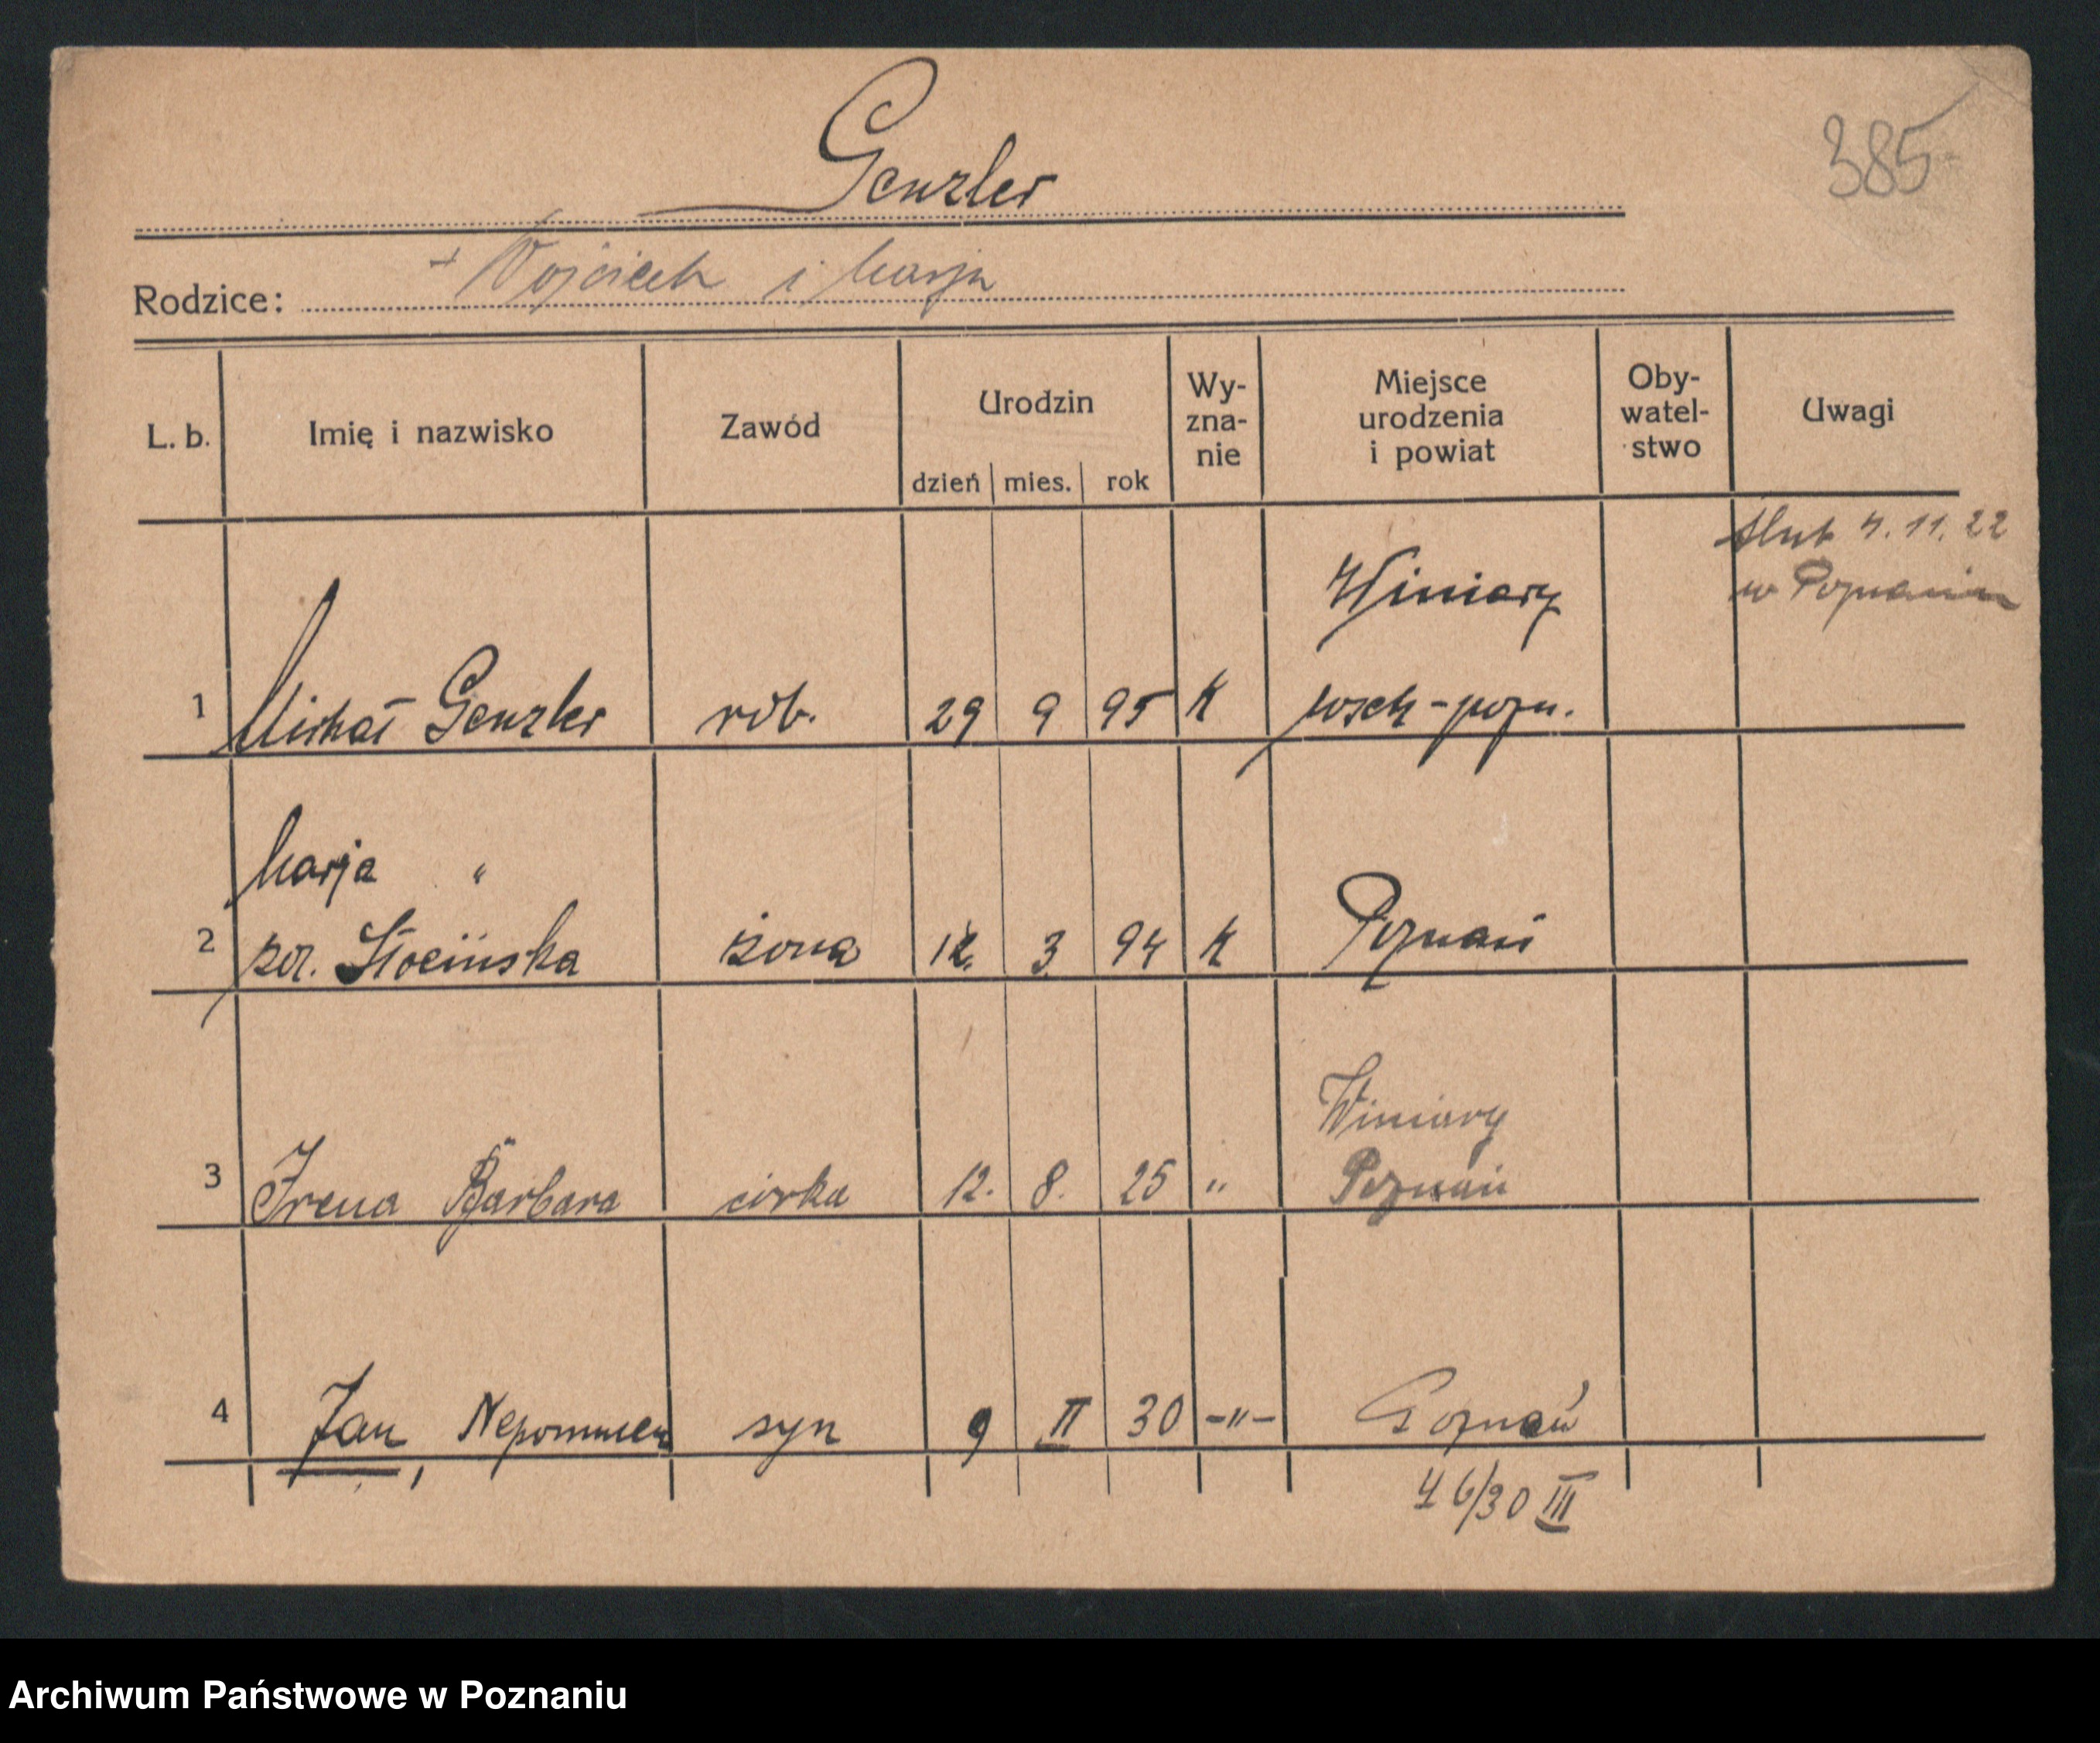 385
Genzler
Rodzice: + Wojciech i Marja
L. b. Imię i nazwisko Zawód Urodzin dzień mies. rok Wy-zna-nie Miejsce urodzenia i powiat Oby-watel-stwo Uwagi
ślub 4. 11. 22
w Poznaniu
Winiary
1 Michał Genzler rob. 29 9 95 K wsch-pozn.
Marja "
2 żona 3 94 K Poznań
Winiary
3 Irena Barbara córka 12. 8. 25 " Poznań
4 Jan, Nepomucen syn 9 II 30 -"- Poznań
46/30 III
Archiwum Państwowe w Poznaniu